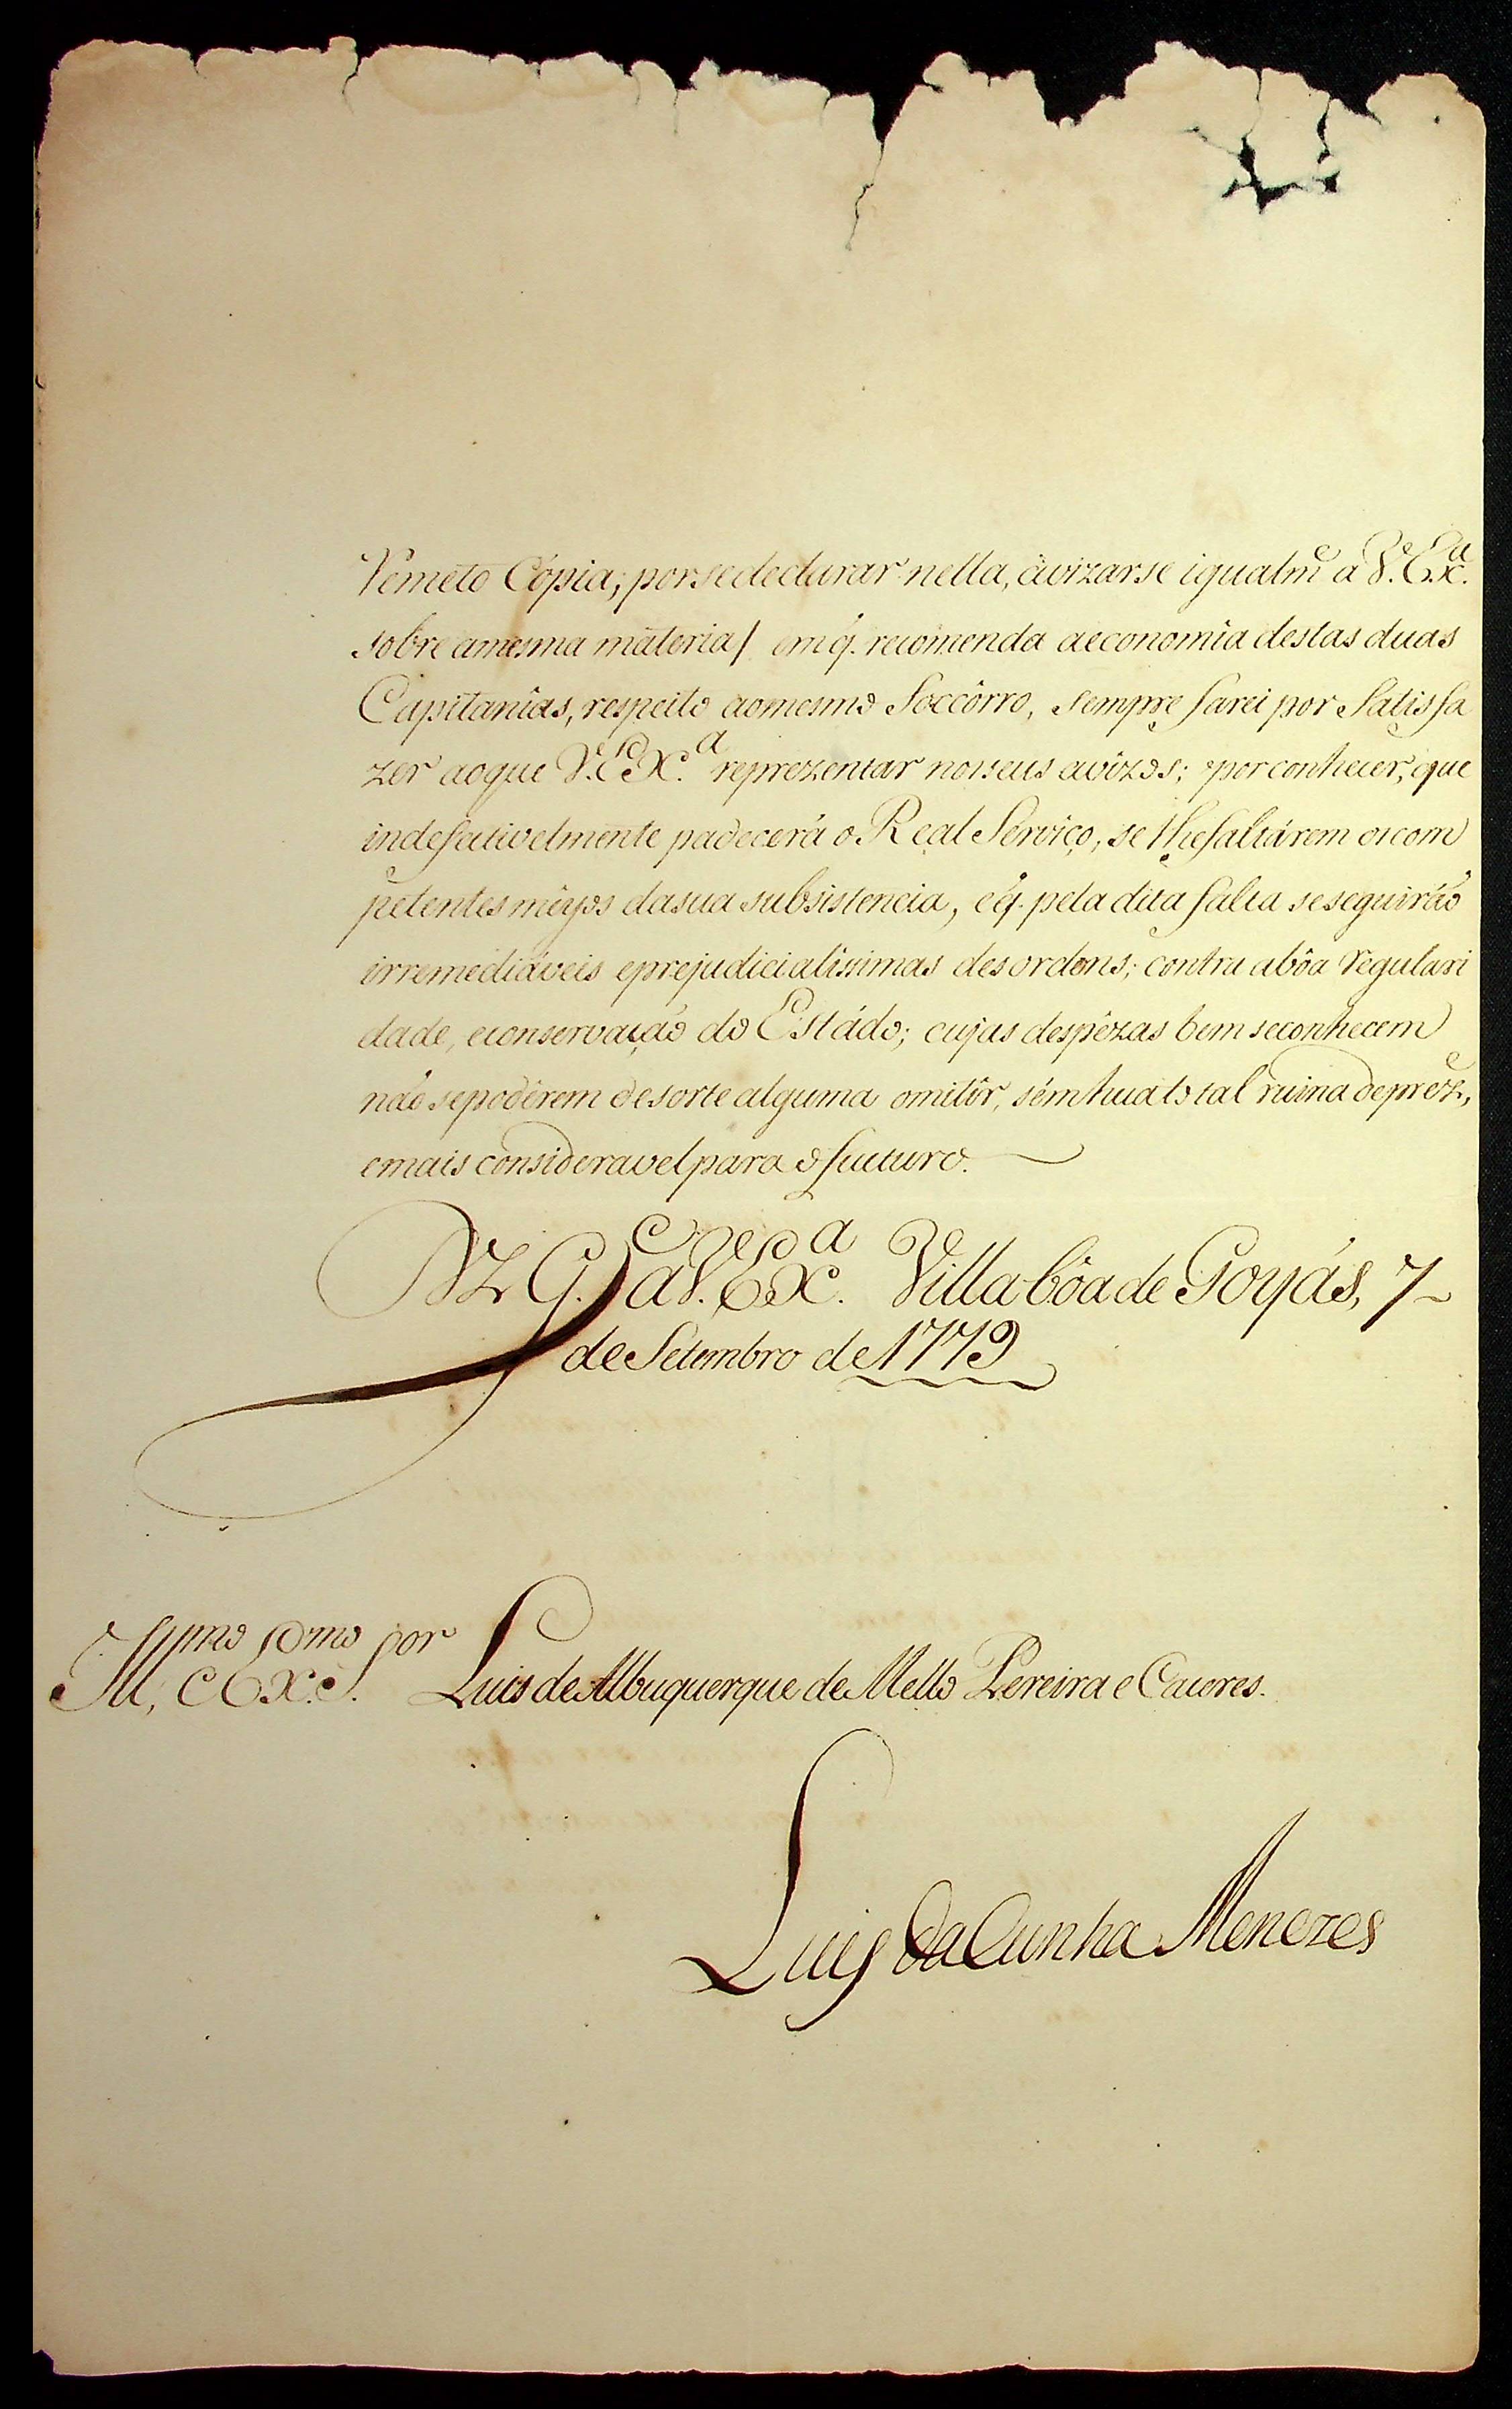 remeto Cópia, porsedeclarar nella, avizarse igualm.e a V. Ex.a
sobre amesma materia/ em q. recomenda aeconomia destas duas
Capitanîas, respeito aomesmo Soccôrro, sempre farei por Satisfa
zer aoque V. Ex.a reprezentar nos seus avizos; por conhecer, que
indefativelmente padecerá o Real Serviço, se lhe faltárem os com
petentes meyos dasua subsistencia, e q. pela dita falta seseguiráõ
irremediáveis eprejudicialissimas desordens; contra abôa regulari
dade, econservaçáõ do Estádo; cujas despêzas bem seconhecem
náõ sepodêrem desorte alguma omitîr, sém hua total ruina deprez.e,
emais consideravel para o futuro.
Ds. G.e a V. Ex.a Villa bôa de Goyás, 7
de Setembro de 1779
Ill.mo, e Ex.mo S.or Luis de Albuquerque de Mello Pereira e Caceres.
Luis da Cunha Menezes